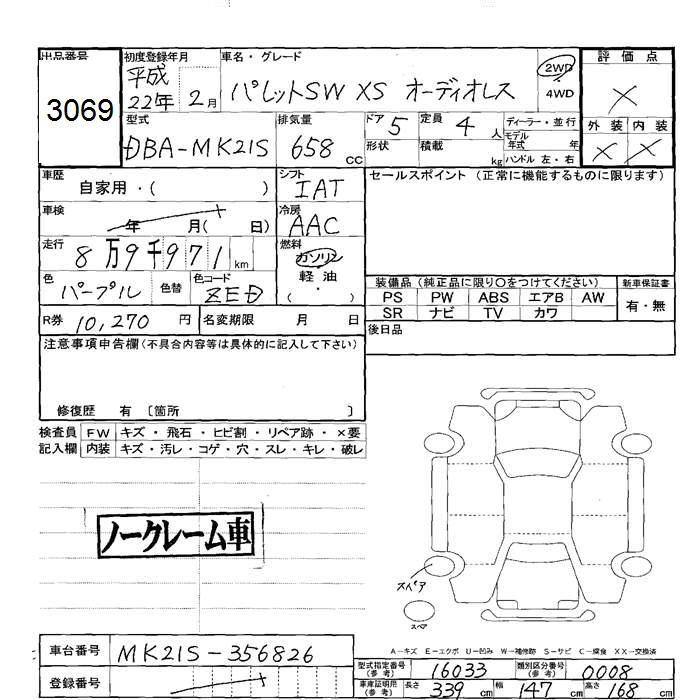 出品番号
3069
初度登録年月
平成
22年 2月
車名・グレード
パレットSW XS オーディオレス
2WD
4WD
評価点
×
外装 内装
× ×
型式
DBA-MK21S
排気量
658 cc
ドア 5
定員 4 人
形状
積載 kg
ディーラー・並行
モデル年式 年
ハンドル 左・右
車歴
自家用・( )
シフト
IAT
車検
年 月( 日)
冷房
AAC
走行
8万9千971 km
燃料
ガソリン
軽油
( ・ )
色
パープル
色替
色コード
ZED
R券 10,270 円
名変期限 月 日
セールスポイント (正常に機能するものに限ります)
装備品 (純正品に限り〇をつけてください)
PS PW ABS エアB AW
SR ナビ TV カワ
新車保証書
有・無
後日品
注意事項申告欄(不具合内容等は具体的に記入して下さい)
修復歴 有 〔箇所 〕
検査員記入欄
FW キズ・飛石・ヒビ割・リペア跡・×要
内装 キズ・汚レ・コゲ・穴・スレ・キレ・破レ
ノークレーム車
スペア
スペア
A-キズ E-エクボ U-凹み W-補修跡 S-サビ C-腐食 XX-交換済
車台番号 MK21S-356826
登録番号
型式指定番号(参考) 16033
類別区分番号(参考) 0008
車庫証明用(参考) 長さ 339 cm 幅 147 cm 高さ 168 cm